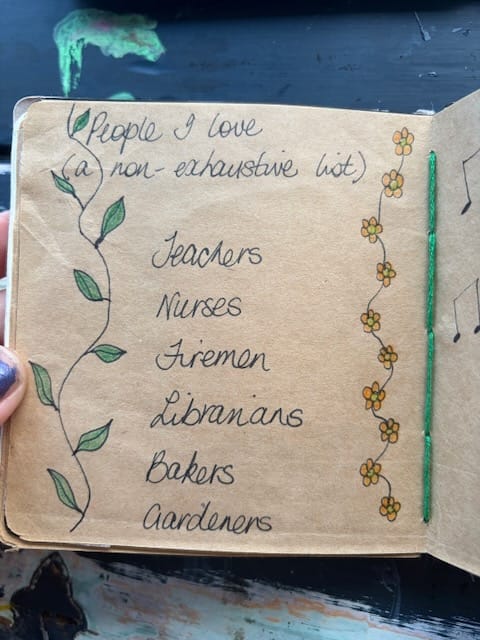 People I love
(a non-exhaustive list)
Teachers
Nurses
Firemen
Librarians
Bakers
Gardeners